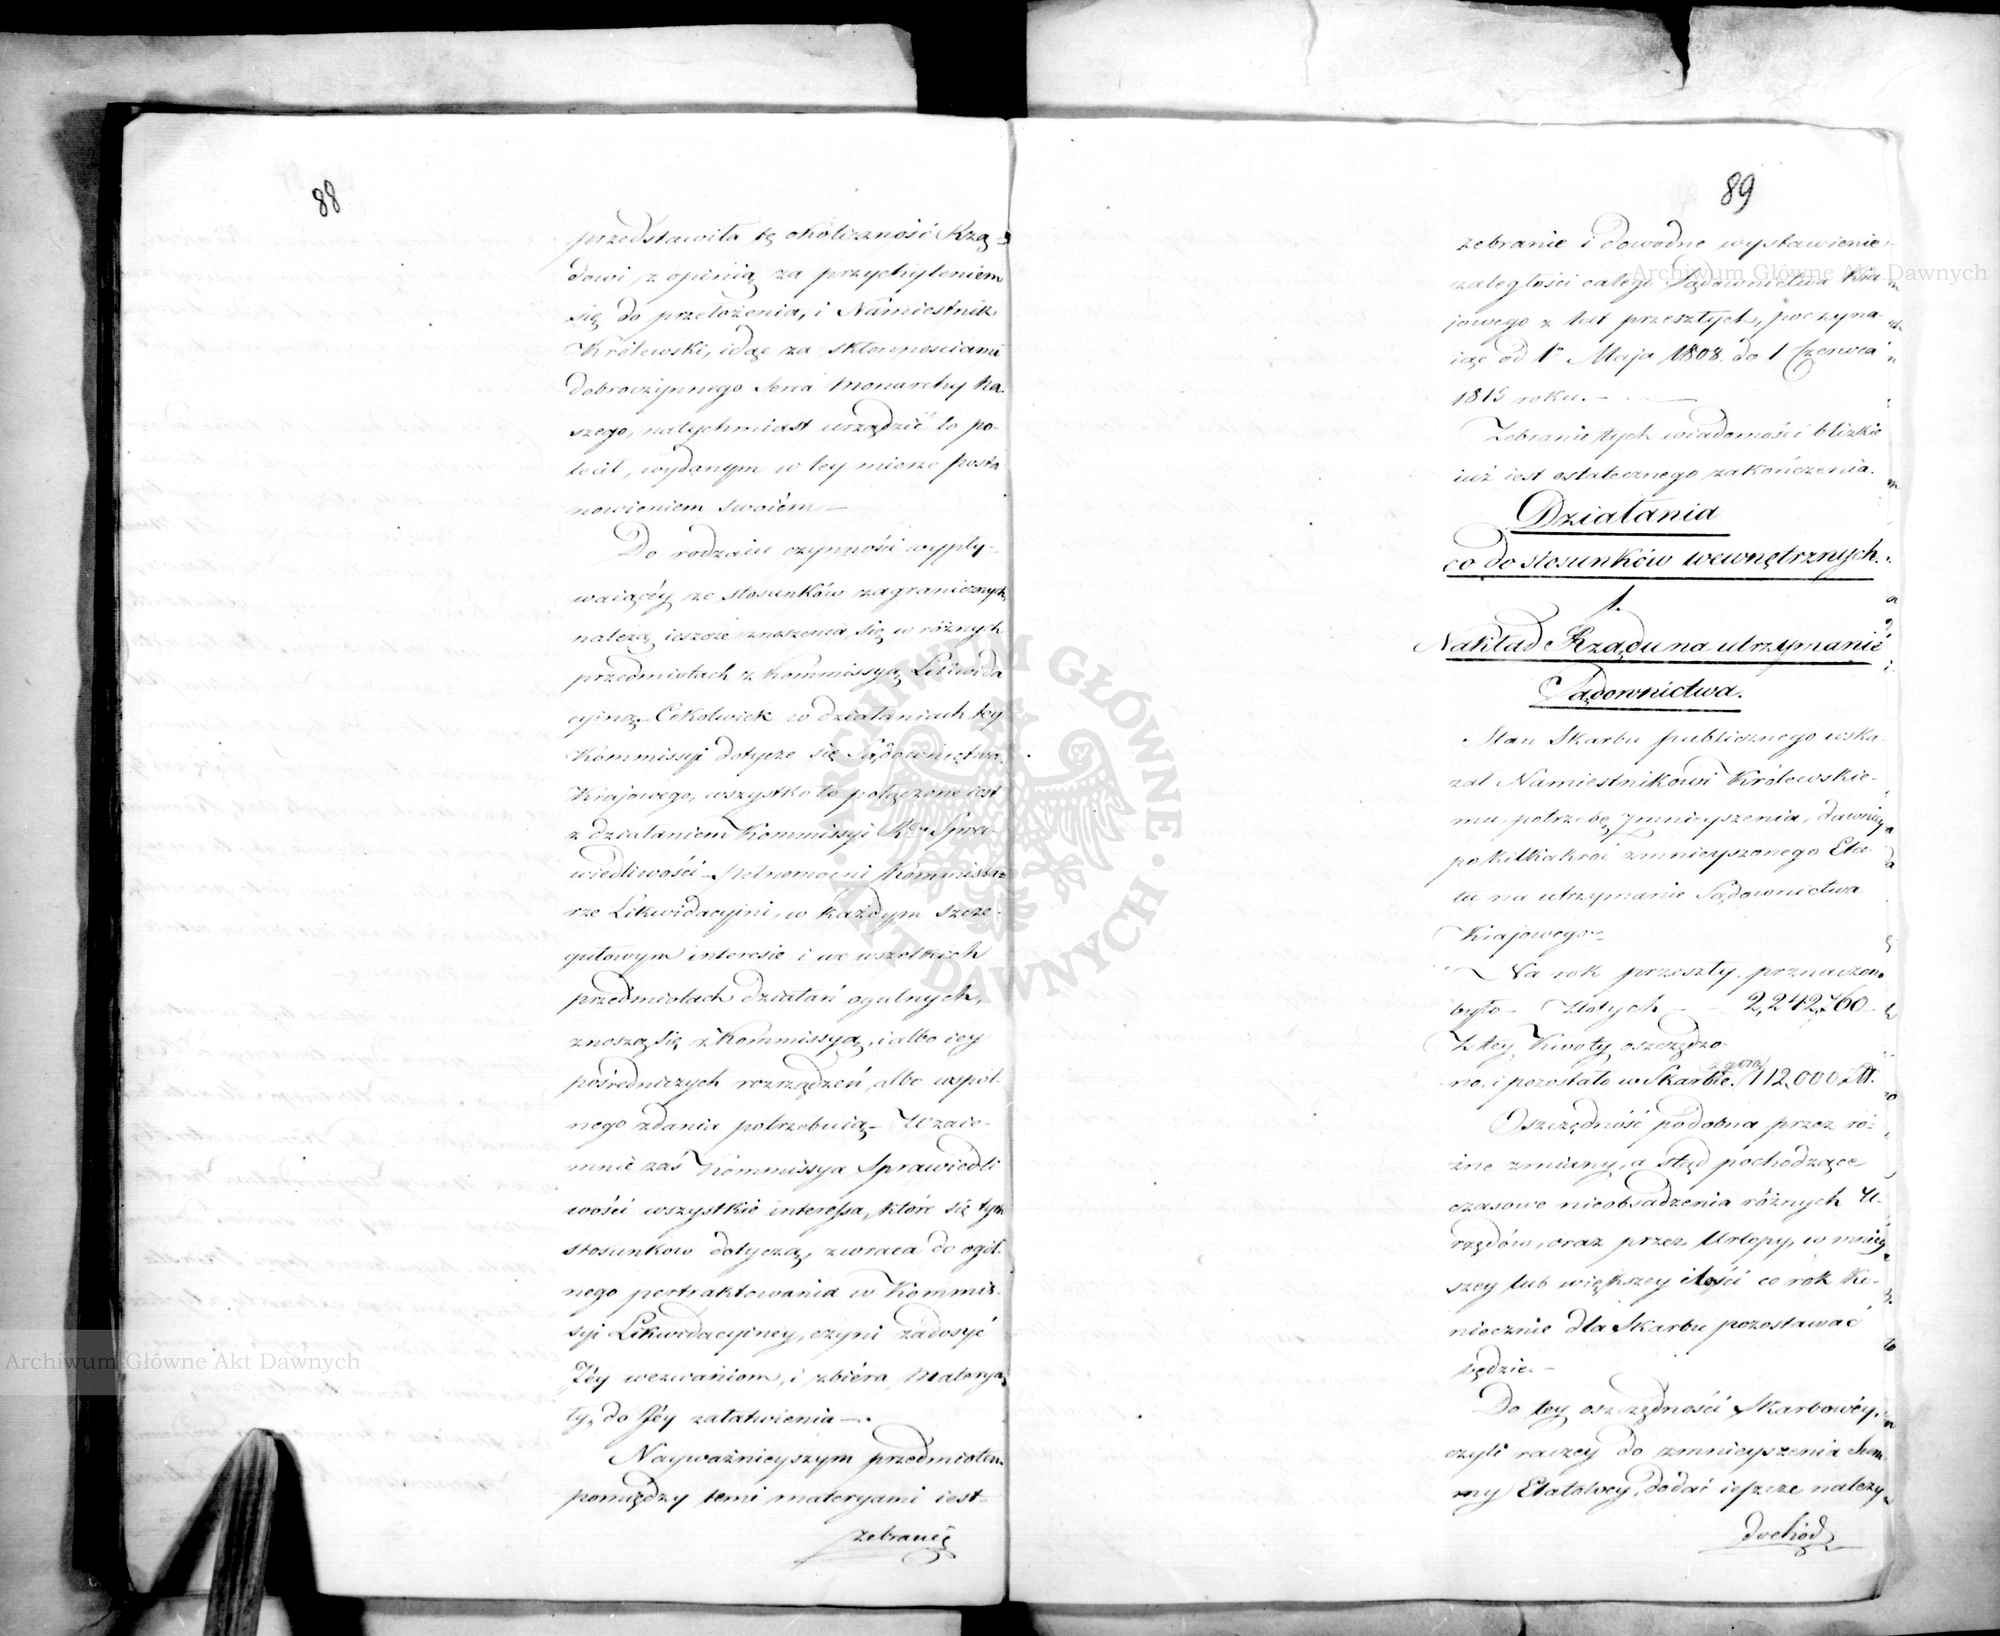 88
przedstawiła tę okoliczność Rzą-
dowi, z opinią za przychyleniem
się do przełożenia, i Namiestnik
Królewski, idąc za skłonnościami
dobroczynnego Serca Monarchy Na-
szego, natychmiast urządzić to po-
lecił, wydanym w tey mierze posta
nowieniem swoiém.—
Do rodzaiu czynności wypły-
waiącéy ze stosunków zagranicznych
należą ieszcze znoszenia się w różnych
przedmiotach z Kommissyą Likwida
cyiną. Cokolwiek w działaniach tey
Kommissyi dotycze się Sądownictwa
Krajowego, wszystko to połączone iest
z działaniem Kommissyi Rząd: Spra-
wiedliwości. Pełnomocni Kommissa-
rze Likwidacyini, w każdym szcze-
gułowym interesie i we wszelkich
przedmiotach działań ogulnych,
znoszą się z Kommissyą, i albo iey
pośredniczych rozrządzeń, albo wspól-
nego zdania potrzebuią. Wzaie-
mnie zaś Kommissya Sprawiedli
wości wszystkie interessa, które się tych
stosunków dotyczą, zwraca do ogól-
nego pertraktowania w Kommis-
syi Likwidacyiney, czyni zadosyć
Jéy wezwaniom, i zbiéra Materya
ły, do Jéy załatwienia.—
Nayważnieyszym przedmiotem
pomiędzy temi materyami iest
zebranie
89
zebranie i dowodne wystawienie
zaległości całego Sądownictwa Kra-
jowego z lat przeszłych, poczyna-
iąc od 1º Maja 1808. do 1 Czerwca
1815 roku.—
Zebranie tych wiadomości blizkie
iuż iest ostatecznego zakończenia.
Działania
co do stosunków wewnętrznych.
1.
Nakład Rządu na utrzymanie
Sądownictwa.
Stan Skarbu publicznego wska-
zał Namiestnikowi Królewskie-
mu, potrzebę zmnieyszenia, dawniéy
po kilkakroć zmnieyszonego Eta-
tu na utrzymanie Sądownictwa
Krajowego.—
Na rok przeszły, prznaczono
było — Złotych — 2,242,760
Z tey Kwoty oszczędzo-
no, i pozostało w Skarbie 112,000 Złł.
Oszczędność podobna przez ró-
żne zmiany, a stąd pochodzące
czasowe nieobsadzenia różnych U-
rzędów, oraz przez Urlopy, w mniéy
szey lub większey ilości co rok Ko-
niecznie dla Skarbu pozostawać
będzie.—
Do tey oszczędności Skarbowéy,
czyli raczey do zmnieyszenia Sum-
my Etatowey, dodać ieszcze należy
dochód
Archiwum Główne Akt Dawnych
Archiwum Główne Akt Dawnych
ARCHIWUM GŁÓWNE AKT DAWNYCH